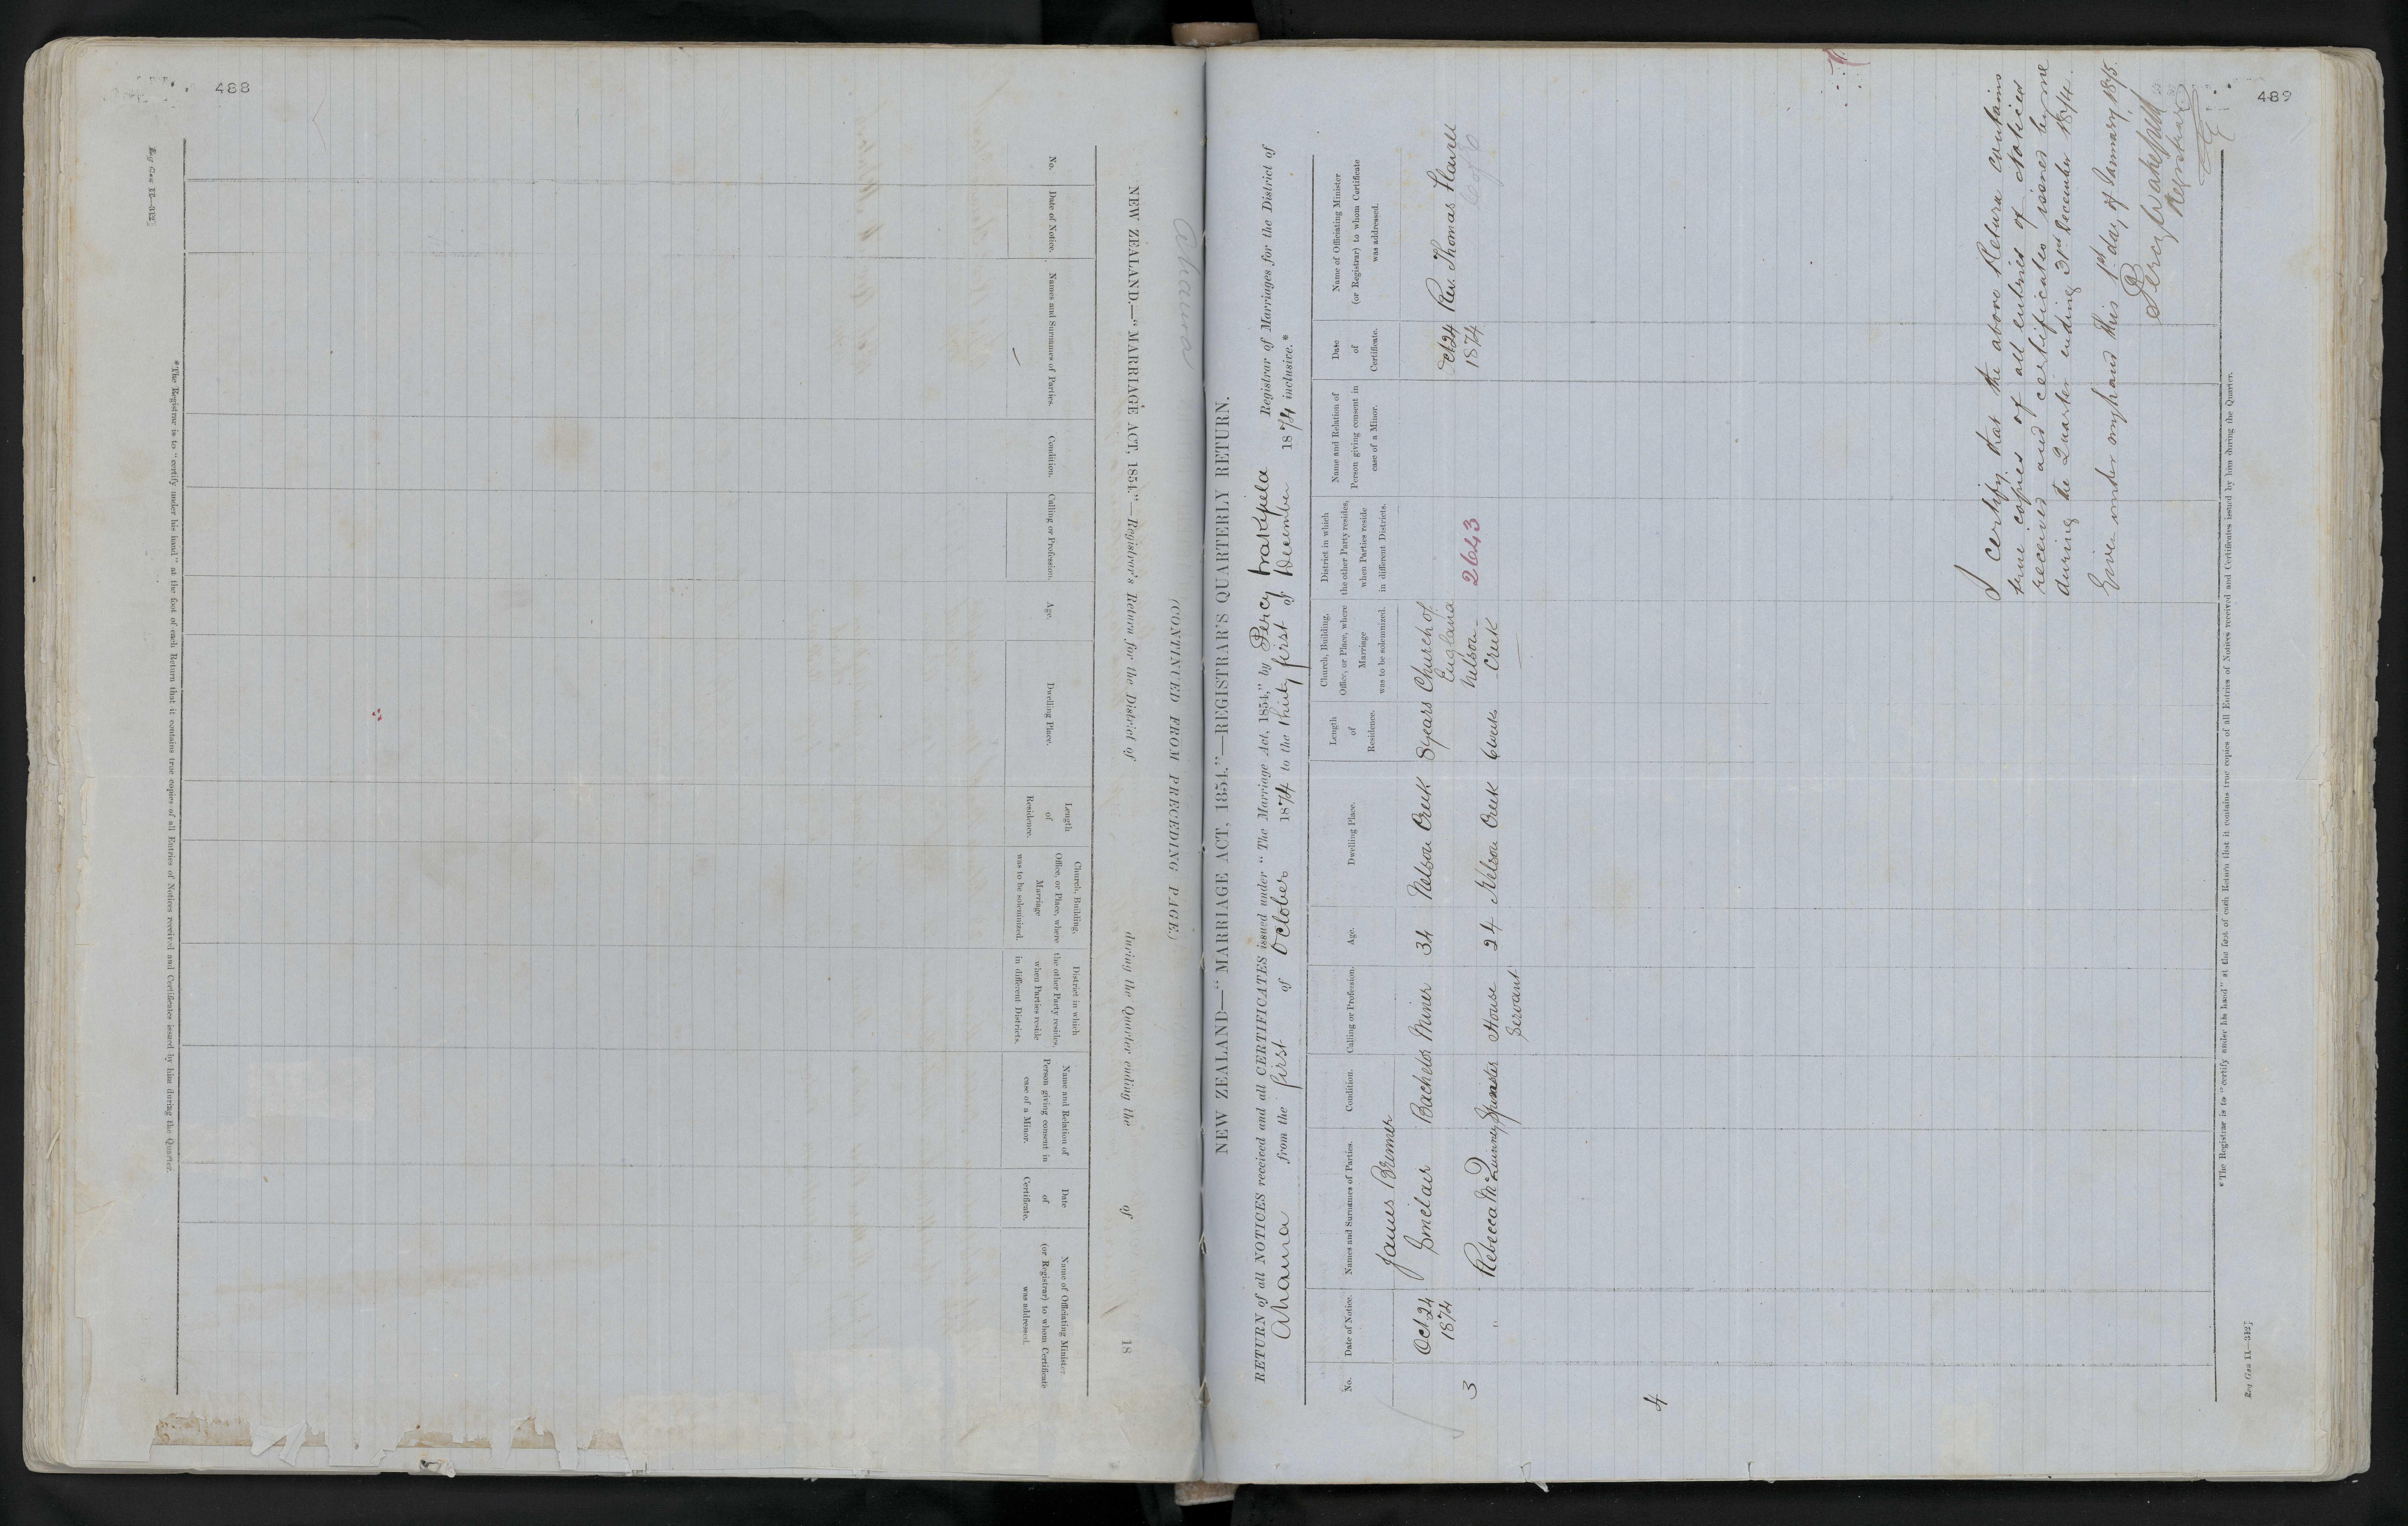 488
Reg Gen 12—312]
NEW ZEALAND.—"MARRIAGE ACT, 1854."—Registrar's Return for the District of during the Quarter ending the of 18
(CONTINUED FROM PRECEDING PAGE.)
Ahaura
No.
Date of Notice.
Names and Surnames of Parties.
Condition.
Calling or Profession.
Age.
Dwelling Place.
Length
of
Residence.
Church, Building,
Office, or Place, where
Marriage
was to be solemnized.
District in which
the other Party resides,
when Parties reside
in different Districts.
Name and Relation of
Person giving consent in
case of a Minor.
Date
of
Certificate.
Name of Officiating Minister
(or Registrar) to whom Certificate
was addressed.
*The Registrar is to "certify under his hand" at the foot of each Return that it contains true copies of all Entries of Notices received and Certificates issued by him during the Quarter.
489
NEW ZEALAND—"MARRIAGE ACT, 1854."—REGISTRAR'S QUARTERLY RETURN.
RETURN of all NOTICES received and all CERTIFICATES issued under "The Marriage Act, 1854," by Percy Wakefield Registrar of Marriages for the District of
Ahaura from the first of October 1874 to the thirty first of December 1874 inclusive.*
No.
Date of Notice.
Names and Surnames of Parties.
Condition.
Calling or Profession.
Age.
Dwelling Place.
Length
of
Residence.
Church, Building,
Office, or Place, where
Marriage
was to be solemnized.
District in which
the other Party resides,
when Parties reside
in different Districts.
Name and Relation of
Person giving consent in
case of a Minor.
Date
of
Certificate.
Name of Officiating Minister
(or Registrar) to whom Certificate
was addressed.
3
Oct 24
1874
James Bremner
Sinclair
Bachelor
Miner
34
Nelson Creek
8 years
Church of
England
Nelson
Creek
2643
Oct 24
1874
Rev. Thomas Flavell
C of E
"
Rebecca McQuinney
Spinster
House
Servant
24
Nelson Creek
6 weeks
4
I certify that the above Return contains
true copies of all entries of Notices
received and certificates issued by me
during the Quarter ending 31st December 1874.
Given under my hand this 1st day of January 1875.
Percy Wakefield
Registrar
*The Registrar is to "certify under his hand" at the foot of each Return that it contains true copies of all Entries of Notices received and Certificates issued by him during the Quarter.
Reg Gen 11—312]